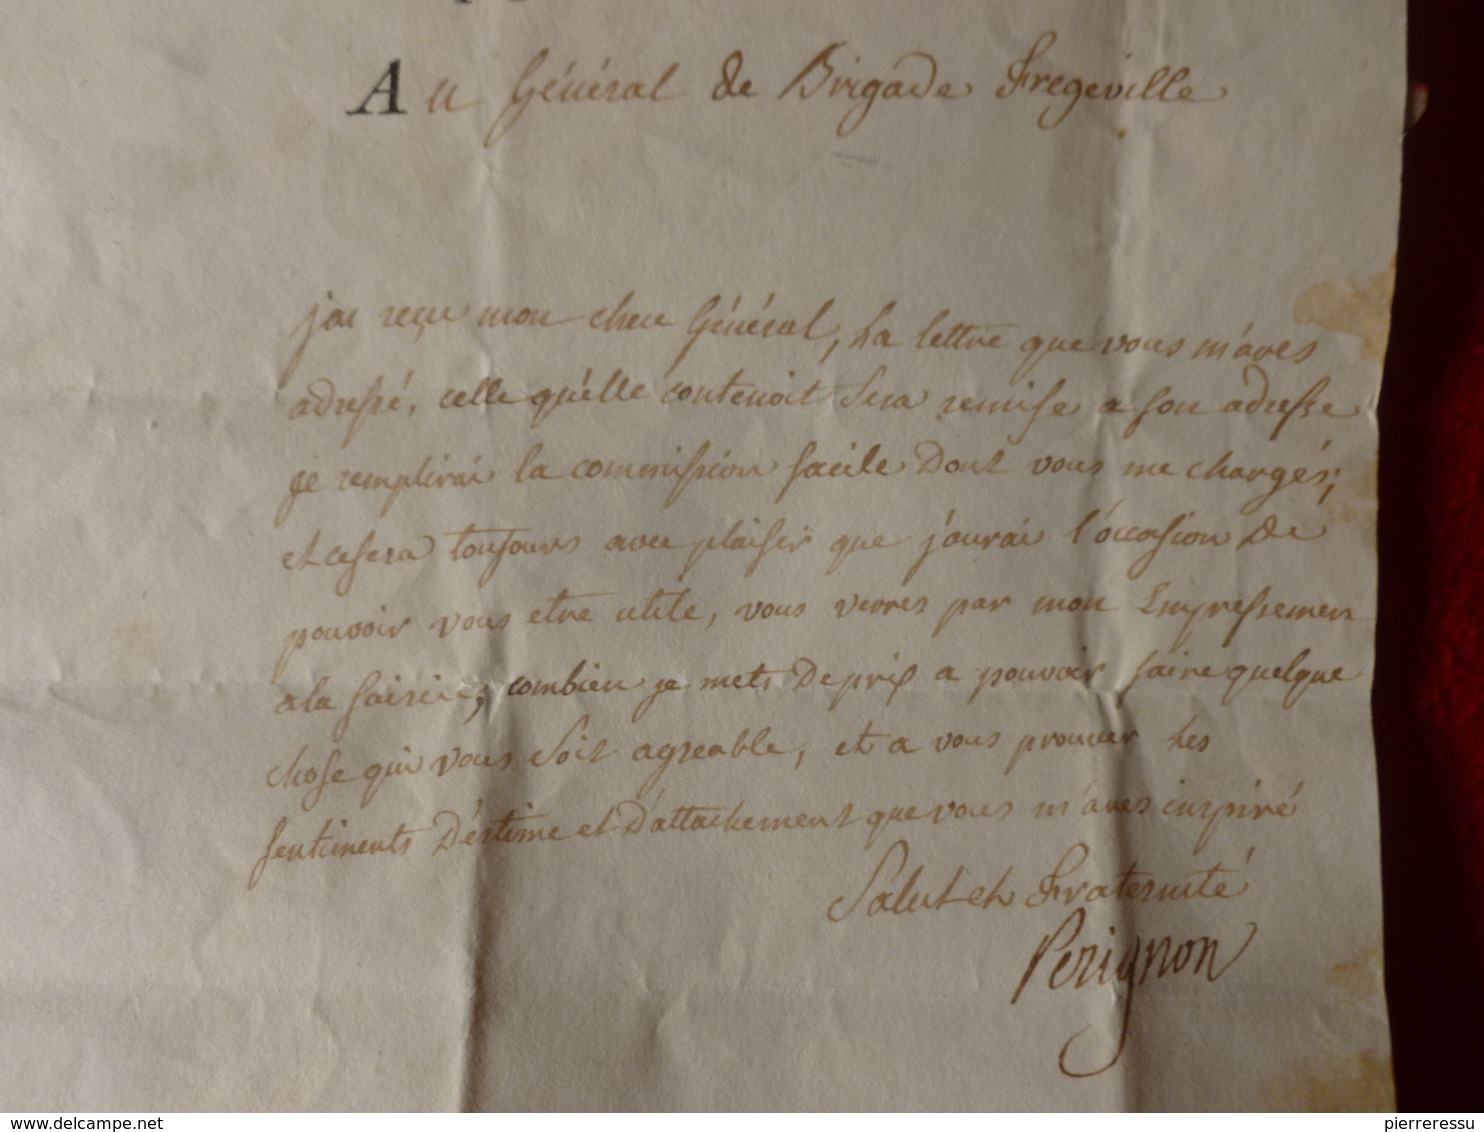 Au Général de Brigade Fregeville
j'ai reçu mon cher Général, La lettre que vous m'aves
adressé, celle qu'elle contenoit Sera remise a son adresse
je remplirai la commission facile Dont vous me chargés;
et ce sera toujours avec plaisir que j'aurai l'occasion De
pouvoir vous etre utile, vous verrez par mon Empressement
a la faisire, combien je mets De prix a pouvoir faire quelque
chose qui vous Soit agreable, et a vous prouver Les
sentiments D'éstime et D'attachement que vous m'aves inspiré
Salut et Fraternité
Perignon
www.delcampe.net
pierreressu